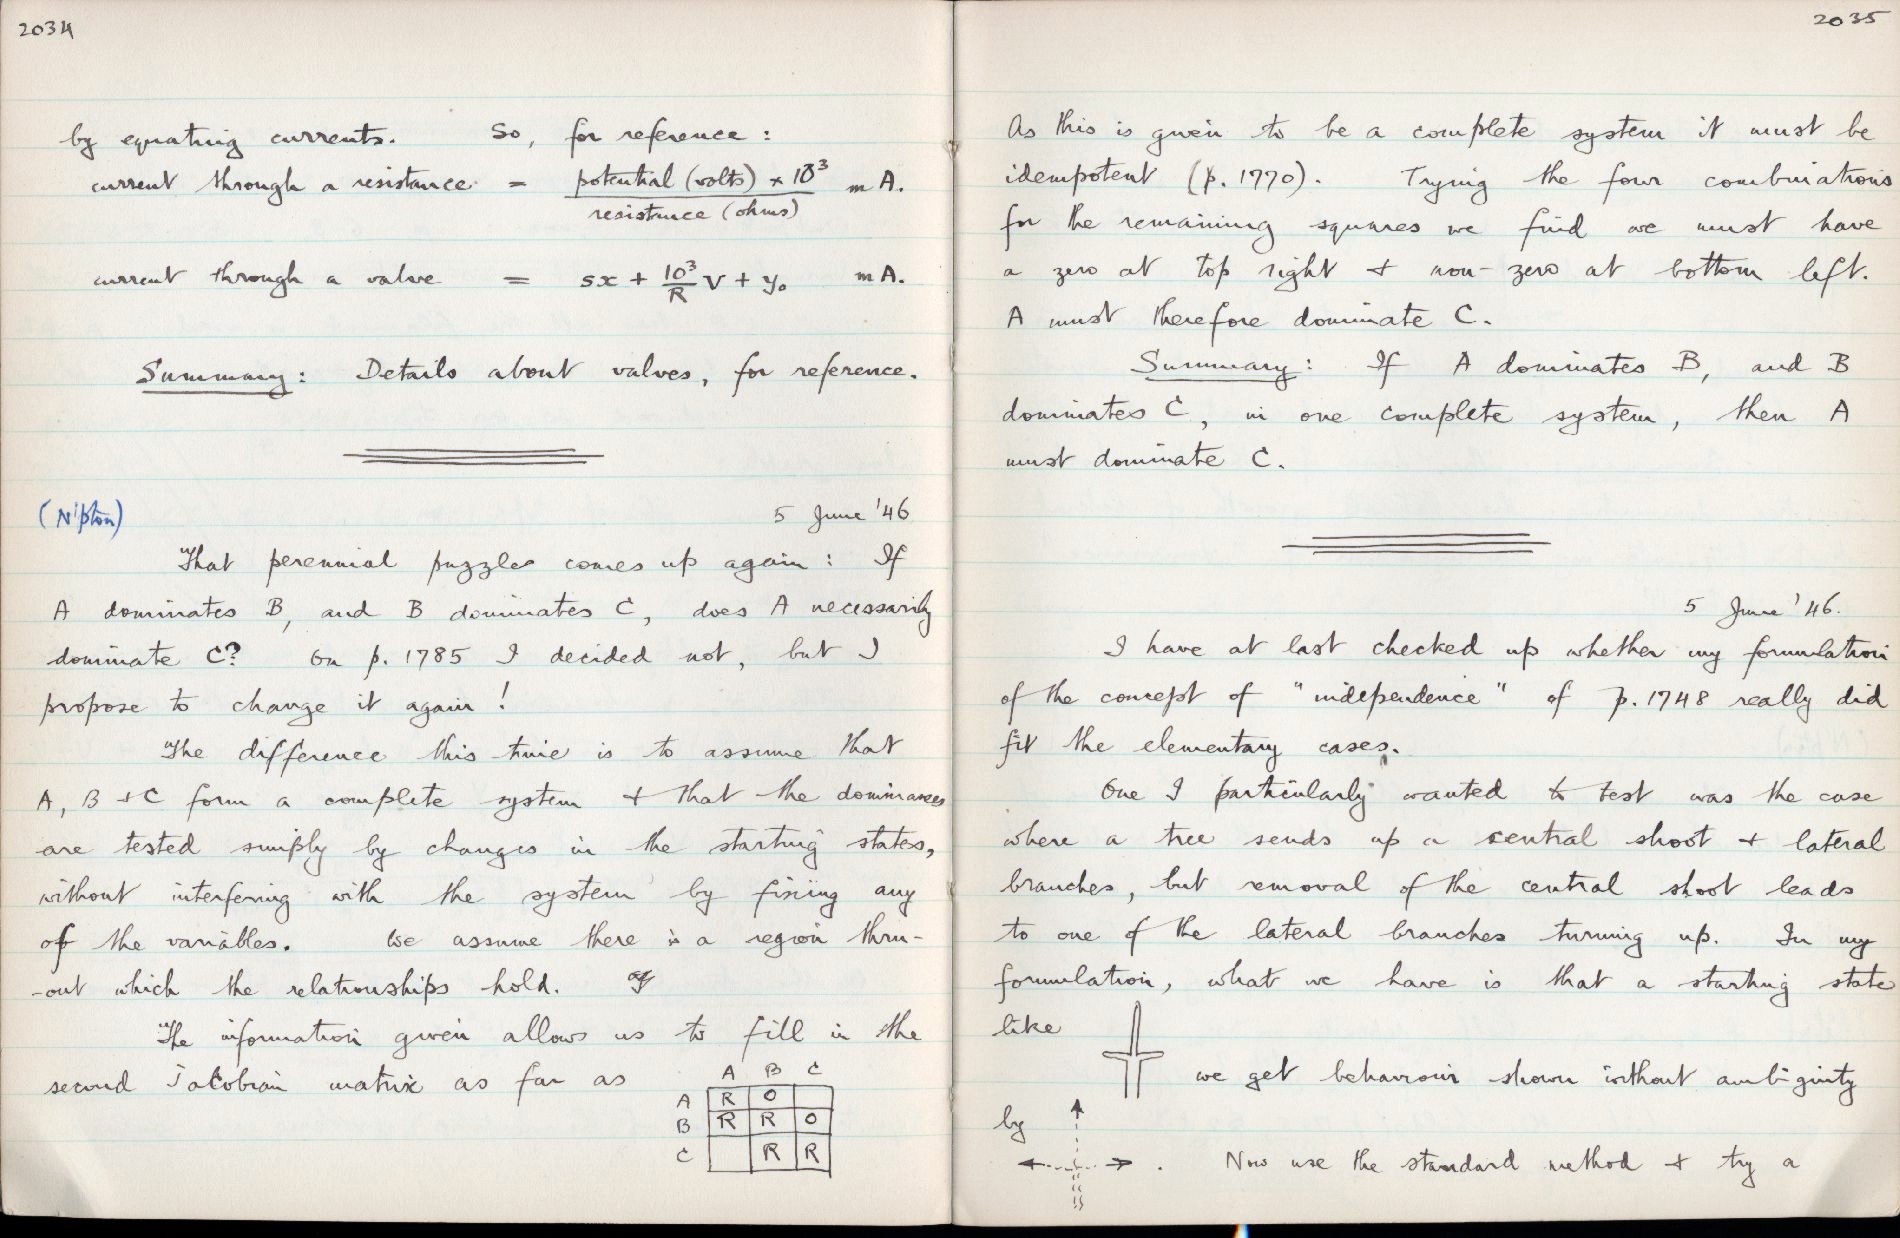 2034
by equating currents. So, for reference :
current through a resistance = potential (volts) × 10³ / resistance (ohms) mA.
current through a valve = sx + 10³/R V + y₀ mA.
Summary: Details about valves, for reference.
(N'pton)
5 June '46
That perennial puzzle comes up again : If
A dominates B, and B dominates C, does A necessarily
dominate C? On p. 1785 I decided not, but I
propose to change it again !
The difference this time is to assume that
A, B + C form a complete system + that the dominances
are tested simply by changes in the starting states,
without interfering with the system by fixing any
of the variables. We assume there is a region thru-
-out which the relationships hold.
The information given allows us to fill in the
second Jacobian matrix as far as
A B C
A R O
B R R O
C R R
2035
As this is given to be a complete system it must be
idempotent (p. 1770). Trying the four combinations
for the remaining squares we find we must have
a zero at top right + non-zero at bottom left.
A must therefore dominate C.
Summary : If A dominates B, and B
dominates C, in one complete system, then A
must dominate C.
5 June '46.
I have at last checked up whether my formulation
of the concept of "independence" of p. 1748 really did
fit the elementary cases.
One I particularly wanted to test was the case
where a tree sends up a central shoot + lateral
branches, but removal of the central shoot leads
to one of the lateral branches turning up. In my
formulation, what we have is that a starting state
like
we get behaviour shown without ambiguity
by
. Now use the standard method + try a